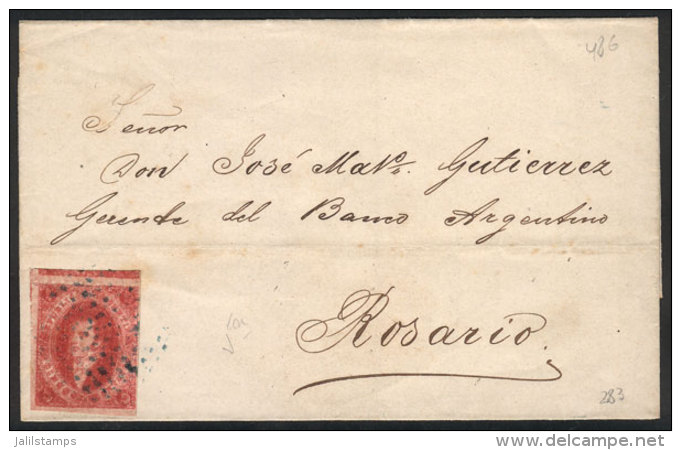 486
Señor
Don José Maª. Gutierrez
Gerente del Banco Argentino
Rosario.
283
jalilstamps
www.delcampe.net